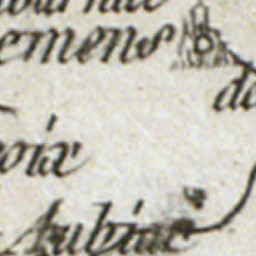 emens
de
oix
Aubiac